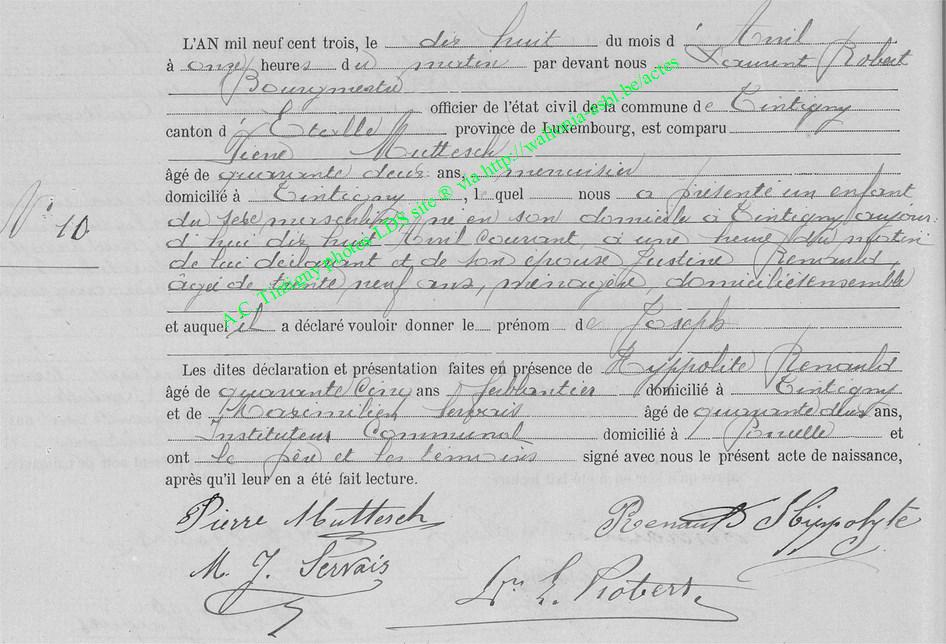 L'AN mil neuf cent trois, le dix huit du mois d' Avril
à onze heures du matin par devant nous Laurent Robert
Bourgmestre
officier de l'état civil de la commune de Tintigny
canton d' Etalle province de Luxembourg, est comparu
Pierre Muttesch
âgé de quarante deux ans, menuisier
domicilié à Tintigny, le quel nous a présenté un enfant
du sexe masculin, né en son domicile à Tintigny aujour-
d'hui dix huit Avril courant, à une heure du matin
de lui déclarant et de son épouse Justine Renauld,
âgée de trente neuf ans, ménagère, domiciliés ensemble
N° 10
et auquel il a déclaré vouloir donner le prénom de Joseph
Les dites déclaration et présentation faites en présence de Hyppolite Renauld
âgé de quarante cinq ans ferblantier domicilié à Tintigny
et de Maximilien Servais âgé de quarante deux ans,
Instituteur Communal domicilié à et
ont le père et les témoins signé avec nous le présent acte de naissance,
après qu'il leur en a été fait lecture.
Pierre Muttesch Renauld Hippolyte
M. J. Servais
Robert
A.C. Tintigny photos LBS site ® via http://wallonia-asbl.be/actes